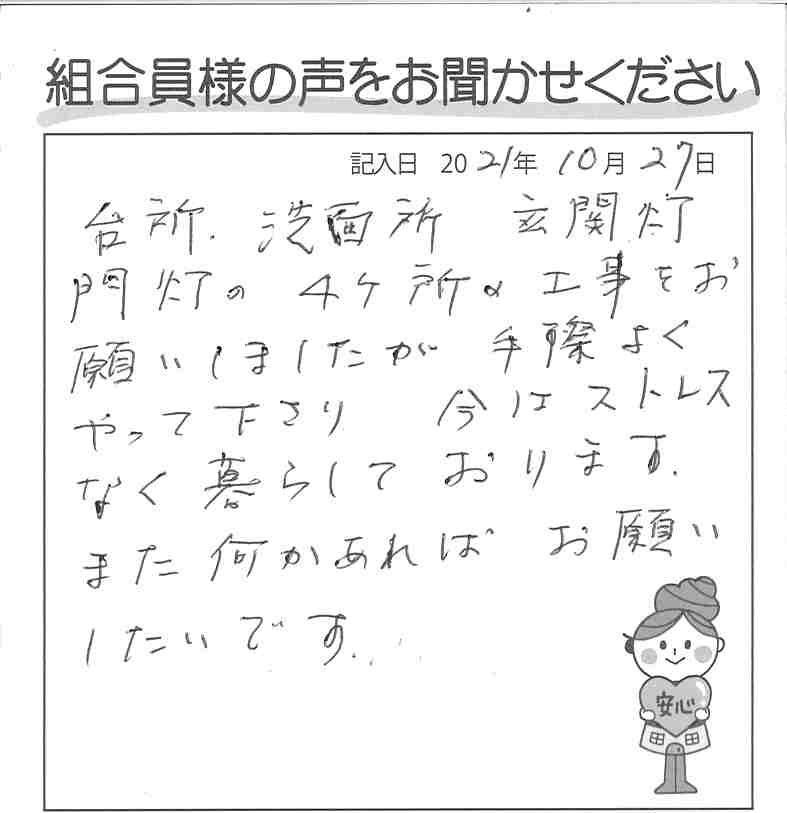 組合員様の声をお聞かせください
記入日 2021年 10月 27日
台所. 洗面所 玄関灯
門灯の 4ケ所の 工事をお
願いしましたが 手際よく
やって下さり 今はストレス
なく暮らしております.
また何かあれば お願い
したいです...
安心